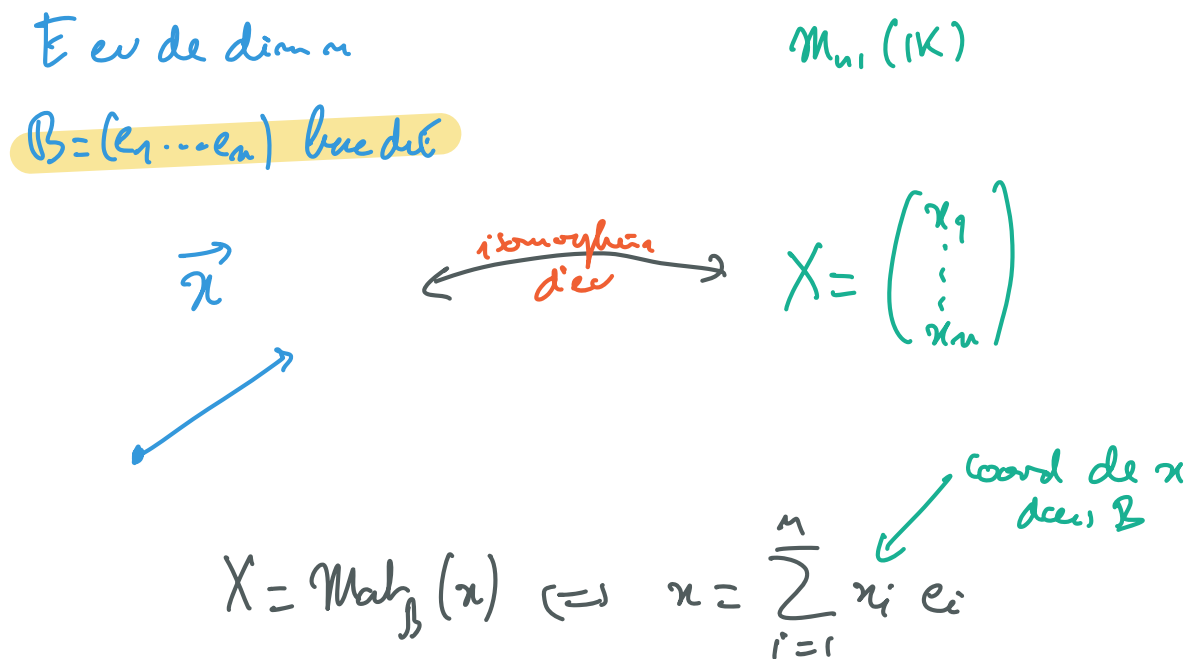 E ev de dim n
M_{n,1}(K)
B=(e_1...e_n) base de E
\vec{x}
isomorphisme
d'ev
X = \begin{pmatrix} x_1 \\ \vdots \\ x_n \end{pmatrix}
coord de x
dans B
X = Mat_B(x) ⟺ x = \sum_{i=1}^{n} x_i e_i